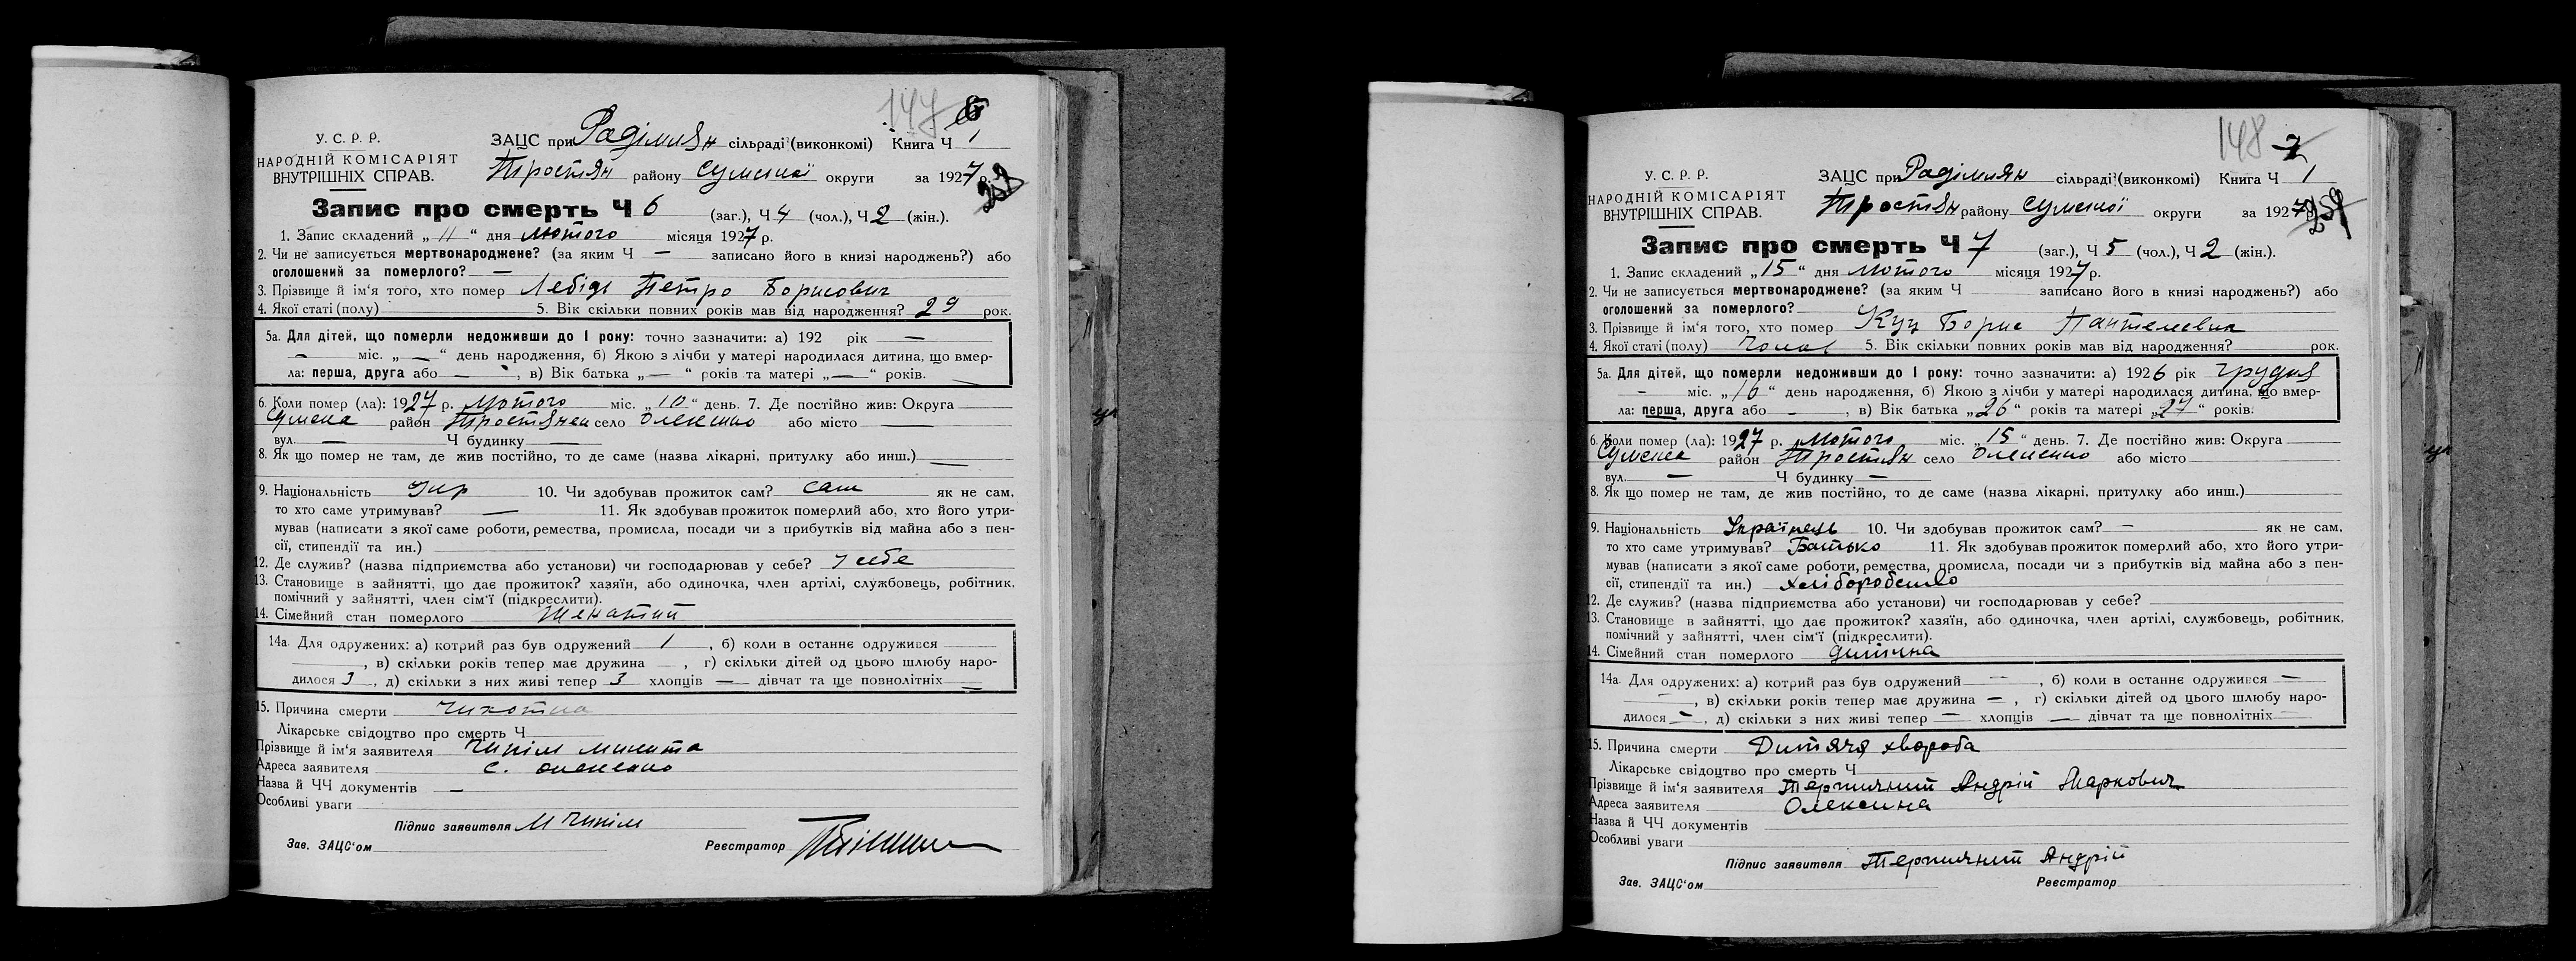 147 6
У. С. Р. Р. ЗАЦС при Радімлян сільраді (виконкомі) Книга Ч 1
НАРОДНІЙ КОМІСАРІЯТ
ВНУТРІШНІХ СПРАВ. Тростян району Сумської округи за 1927 р.
Запис про смерть Ч 6 (заг.), Ч 4 (чол.), Ч 2 (жін.).
1. Запис складений „ 11 “ дня лютого місяця 1927 р.
2. Чи не записується мертвонароджене? (за яким Ч — записано його в книзі народжень?) або
оголошений за померлого? —
3. Прізвище й ім‘я того, хто помер Лебідь Петро Борисович
4. Якої статі (полу) 5. Вік скільки повних років мав від народження? 29 рок.
5а. Для дітей, що померли недоживши до 1 року: точно зазначити: а) 192 рік —
— міс. „ — “ день народження, б) Якою з лічби у матері народилася дитина, що вмер-
ла: перша, друга або — , в) Вік батька „ — “ років та матері „ — “ років.
6. Коли помер (ла): 1927 р. лютого міс. „ 10 “ день. 7. Де постійно жив: Округа
Сумська район Тростянец село Олексино або місто —
вул. — Ч будинку —
8. Як що помер не там, де жив постійно, то де саме (назва лікарні, притулку або инш.) —
9. Національність Укр 10. Чи здобував прожиток сам? сам як не сам,
то хто саме утримував? — 11. Як здобував прожиток померлий або, хто його утри-
мував (написати з якої саме роботи, ремества, промисла, посади чи з прибутків від майна або з пен-
сії, стипендії та ин.)
12. Де служив? (назва підприємства або установи) чи господарював у себе? у себе
13. Становище в зайнятті, що дає прожиток? хазяїн, або одиночка, член артілі, службовець, робітник,
помічний у зайнятті, член сім‘ї (підкреслити).
14. Сімейний стан померлого Женатий
14а. Для одружених: а) котрий раз був одружений 1 , б) коли в останнє одружився
, в) скільки років тепер має дружина — , г) скільки дітей од цього шлюбу наро-
дилося 3 , д) скільки з них живі тепер 3 хлопців — дівчат та ще повнолітніх —
15. Причина смерти Чихотка
Лікарське свідоцтво про смерть Ч
Прізвище й ім‘я заявителя Микита
Адреса заявителя с. Олексино
Назва й ЧЧ документів —
Особливі уваги
Підпис заявителя М
Зав. ЗАЦС‘ом Реєстратор
148 7
У. С. Р. Р. ЗАЦС при Радімлян сільраді (виконкомі) Книга Ч 1
НАРОДНІЙ КОМІСАРІЯТ
ВНУТРІШНІХ СПРАВ. Тростян району Сумської округи за 1927 р.
259
Запис про смерть Ч 7 (заг.), Ч 5 (чол.), Ч 2 (жін.).
1. Запис складений „ 15 “ дня лютого місяця 1927 р.
2. Чи не записується мертвонароджене? (за яким Ч записано його в книзі народжень?) або
оголошений за померлого?
3. Прізвище й ім‘я того, хто помер Куц Борис
4. Якої статі (полу) 5. Вік скільки повних років мав від народження? рок.
5а. Для дітей, що померли недоживши до 1 року: точно зазначити: а) 1926 рік грудня
— міс. „ 16 “ день народження, б) Якою з лічби у матері народилася дитина, що вмер-
ла: перша, друга або — , в) Вік батька „ 26 “ років та матері „ 27 “ років.
6. Коли помер (ла): 1927 р. лютого міс. „ 15 “ день. 7. Де постійно жив: Округа
Сумська район Тростян село Олексино або місто
вул. — Ч будинку —
8. Як що помер не там, де жив постійно, то де саме (назва лікарні, притулку або инш.)
9. Національність Українець 10. Чи здобував прожиток сам? — як не сам,
то хто саме утримував? Батько 11. Як здобував прожиток померлий або, хто його утри-
мував (написати з якої саме роботи, ремества, промисла, посади чи з прибутків від майна або з пен-
сії, стипендії та ин.) хліборобство
12. Де служив? (назва підприємства або установи) чи господарював у себе?
13. Становище в зайнятті, що дає прожиток? хазяїн, або одиночка, член артілі, службовець, робітник,
помічний у зайнятті, член сім‘ї (підкреслити).
14. Сімейний стан померлого дитина
14а. Для одружених: а) котрий раз був одружений — , б) коли в останнє одружився —
— , в) скільки років тепер має дружина — , г) скільки дітей од цього шлюбу наро-
дилося — , д) скільки з них живі тепер — хлопців — дівчат та ще повнолітніх
15. Причина смерти Дитяча хвороба
Лікарське свідоцтво про смерть Ч
Прізвище й ім‘я заявителя Терпиячий Андрій Маркович
Адреса заявителя Олексина
Назва й ЧЧ документів
Особливі уваги
Підпис заявителя Андрій
Зав. ЗАЦС‘ом Реєстратор